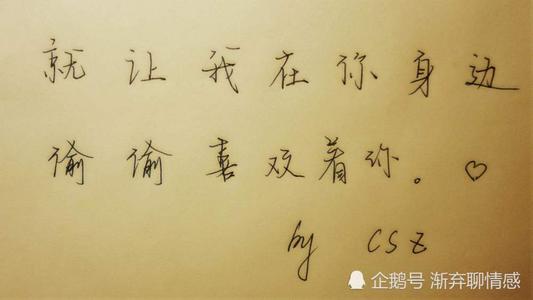 就让我在你身边
偷偷喜欢着你。♡
by CSZ
企鹅号 渐弃聊情感